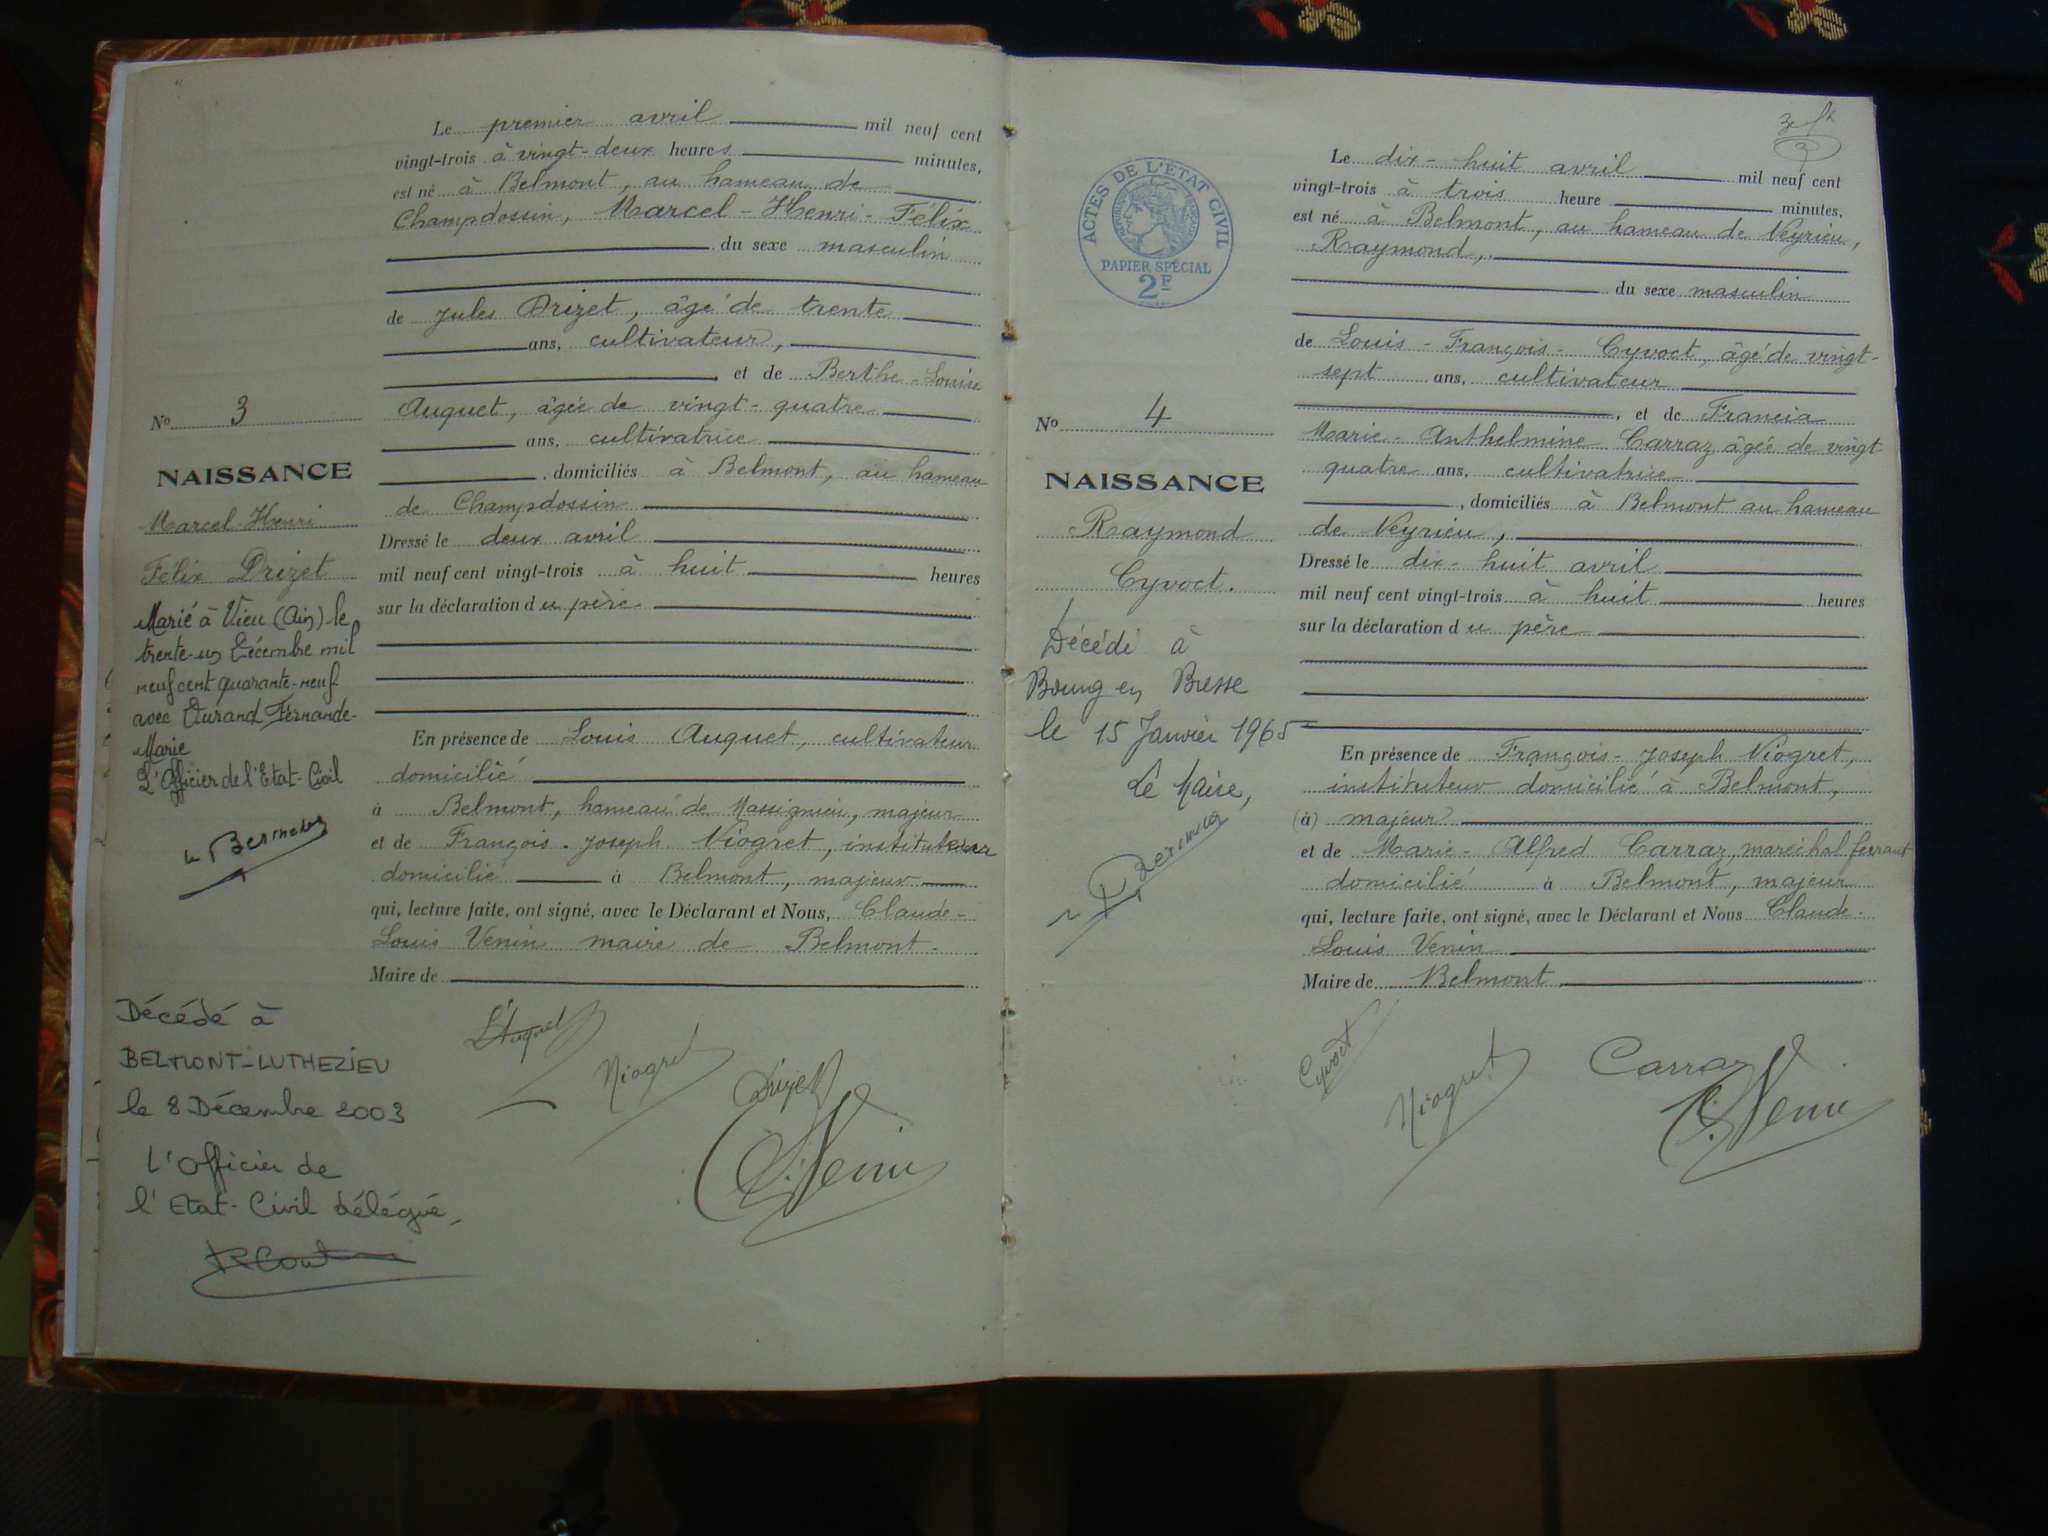 Le premier avril mil neuf cent
vingt-trois à vingt-deux heures minutes,
est né à Belmont, au hameau de
Champdossin, Marcel-Henri-Félix
du sexe masculin
de Jules Drizet, âgé de trente
ans, cultivateur,
et de Berthe-Louise
Auguet, âgée de vingt-quatre
ans, cultivatrice
, domiciliés à Belmont, au hameau
de Champdossin
Dressé le deux avril
mil neuf cent vingt-trois à huit heures
sur la déclaration du père
En présence de Louis Auguet, cultivateur
domicilié
à Belmont, hameau de Massignieu, majeur
et de François-Joseph Viogret, instituteur
domicilié à Belmont, majeur
qui, lecture faite, ont signé, avec le Déclarant et Nous, Claude-
Louis Venin maire de Belmont.
Maire de
L. Auguet
Viogret
Drizet
C. Venin
No 3
NAISSANCE
Marcel-Henri
Félix Drizet
Marié à Vieu (Ain) le
trente-un Décembre mil
neuf cent quarante-neuf
avec Durand Fernande-
Marie
L'Officier de l'Etat-Civil
Décédé à
BELMONT-LUTHEZIEU
le 8 Décembre 2003
L'Officier de
l'Etat-Civil délégué,
ACTES DE L'ETAT CIVIL
PAPIER SPÉCIAL
2F
No 4
NAISSANCE
Raymond
Cyvoct.
Décédé à
Bourg en Bresse
le 15 Janvier 1965
Le Maire,
Le dix-huit avril mil neuf cent
vingt-trois à trois heure minutes,
est né à Belmont, au hameau de Veyrieu,
Raymond,
du sexe masculin
de Louis-François-Cyvoct, âgé de vingt-
sept ans, cultivateur
, et de Francia
Marie-Anthelmine Carraz âgée de vingt
quatre ans, cultivatrice
, domiciliés à Belmont au hameau
de Veyrieu,
Dressé le dix-huit avril
mil neuf cent vingt-trois à huit heures
sur la déclaration du père
En présence de François-Joseph Viogret,
instituteur domicilié à Belmont,
(à) majeur
et de Marie-Alfred Carraz, maréchal ferrant
domicilié à Belmont, majeur
qui, lecture faite, ont signé, avec le Déclarant et Nous Claude-
Louis Venin
Maire de Belmont
Cyvoct
Viogret
Carraz
C. Venin